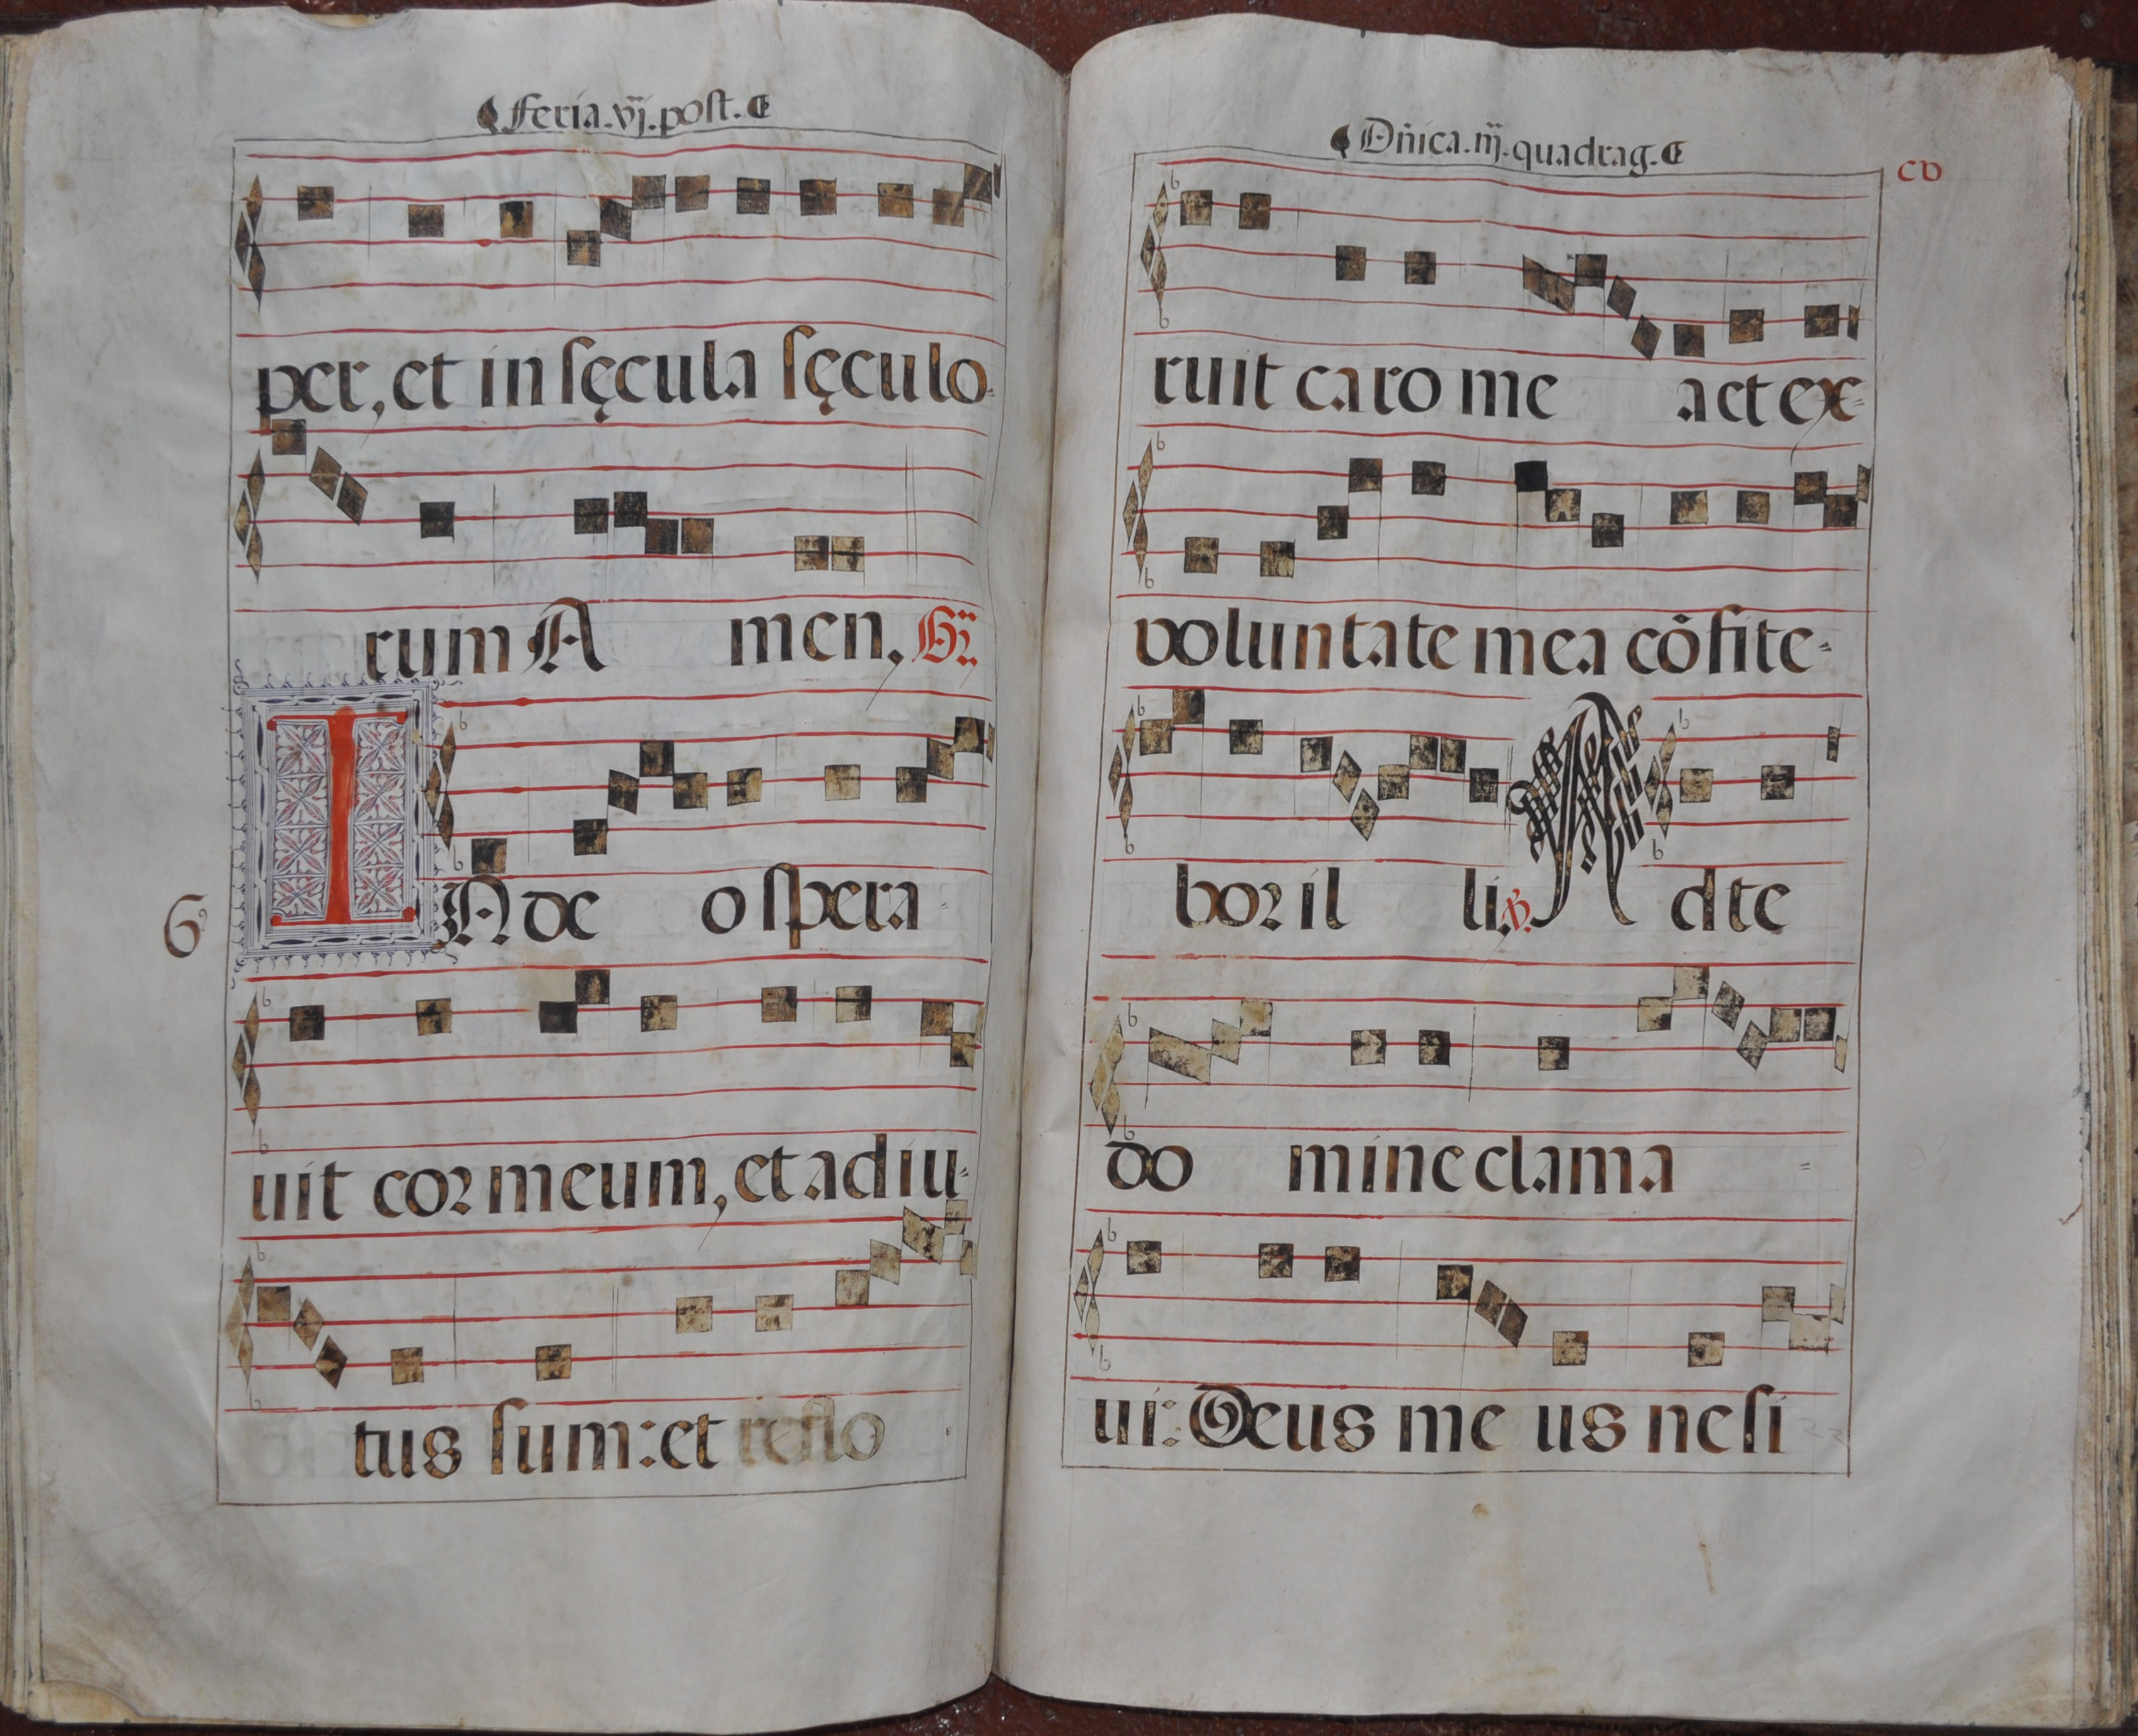 Feria.vj.post.
per, et in sęcula sęculo-
rum Amen, Gr̃
6
IN deo spera-
uit cor meum, et adiu-
tus sum: et reflo
Dñica.iij.quadrag.
cv
ruit caro mea et ex-
voluntate mea cõfite-
bor illi, ℣. Ad te
domine clama-
ui: Deus meus ne si